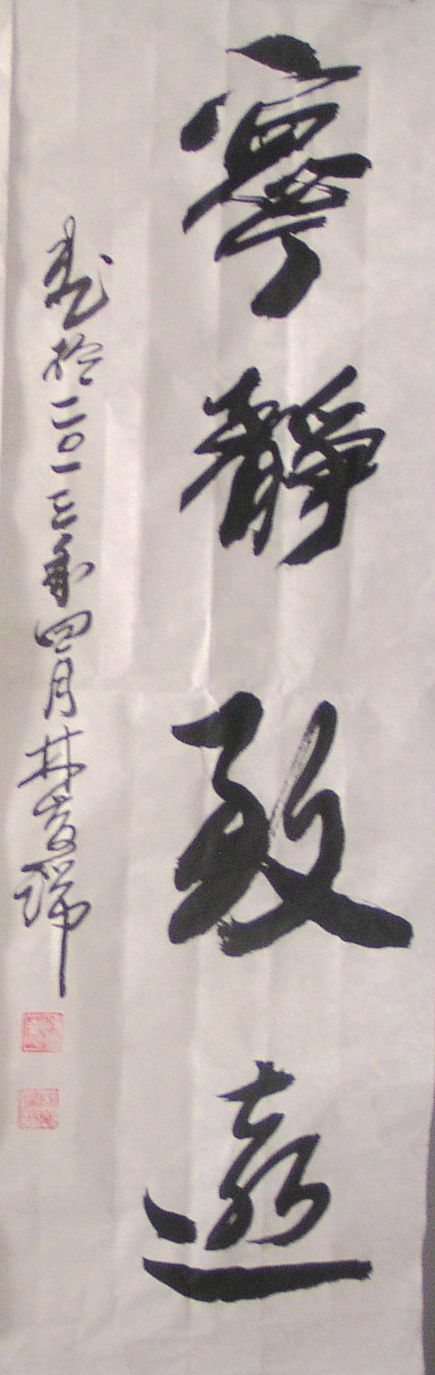 寧靜致遠
書於二〇一三年四月林